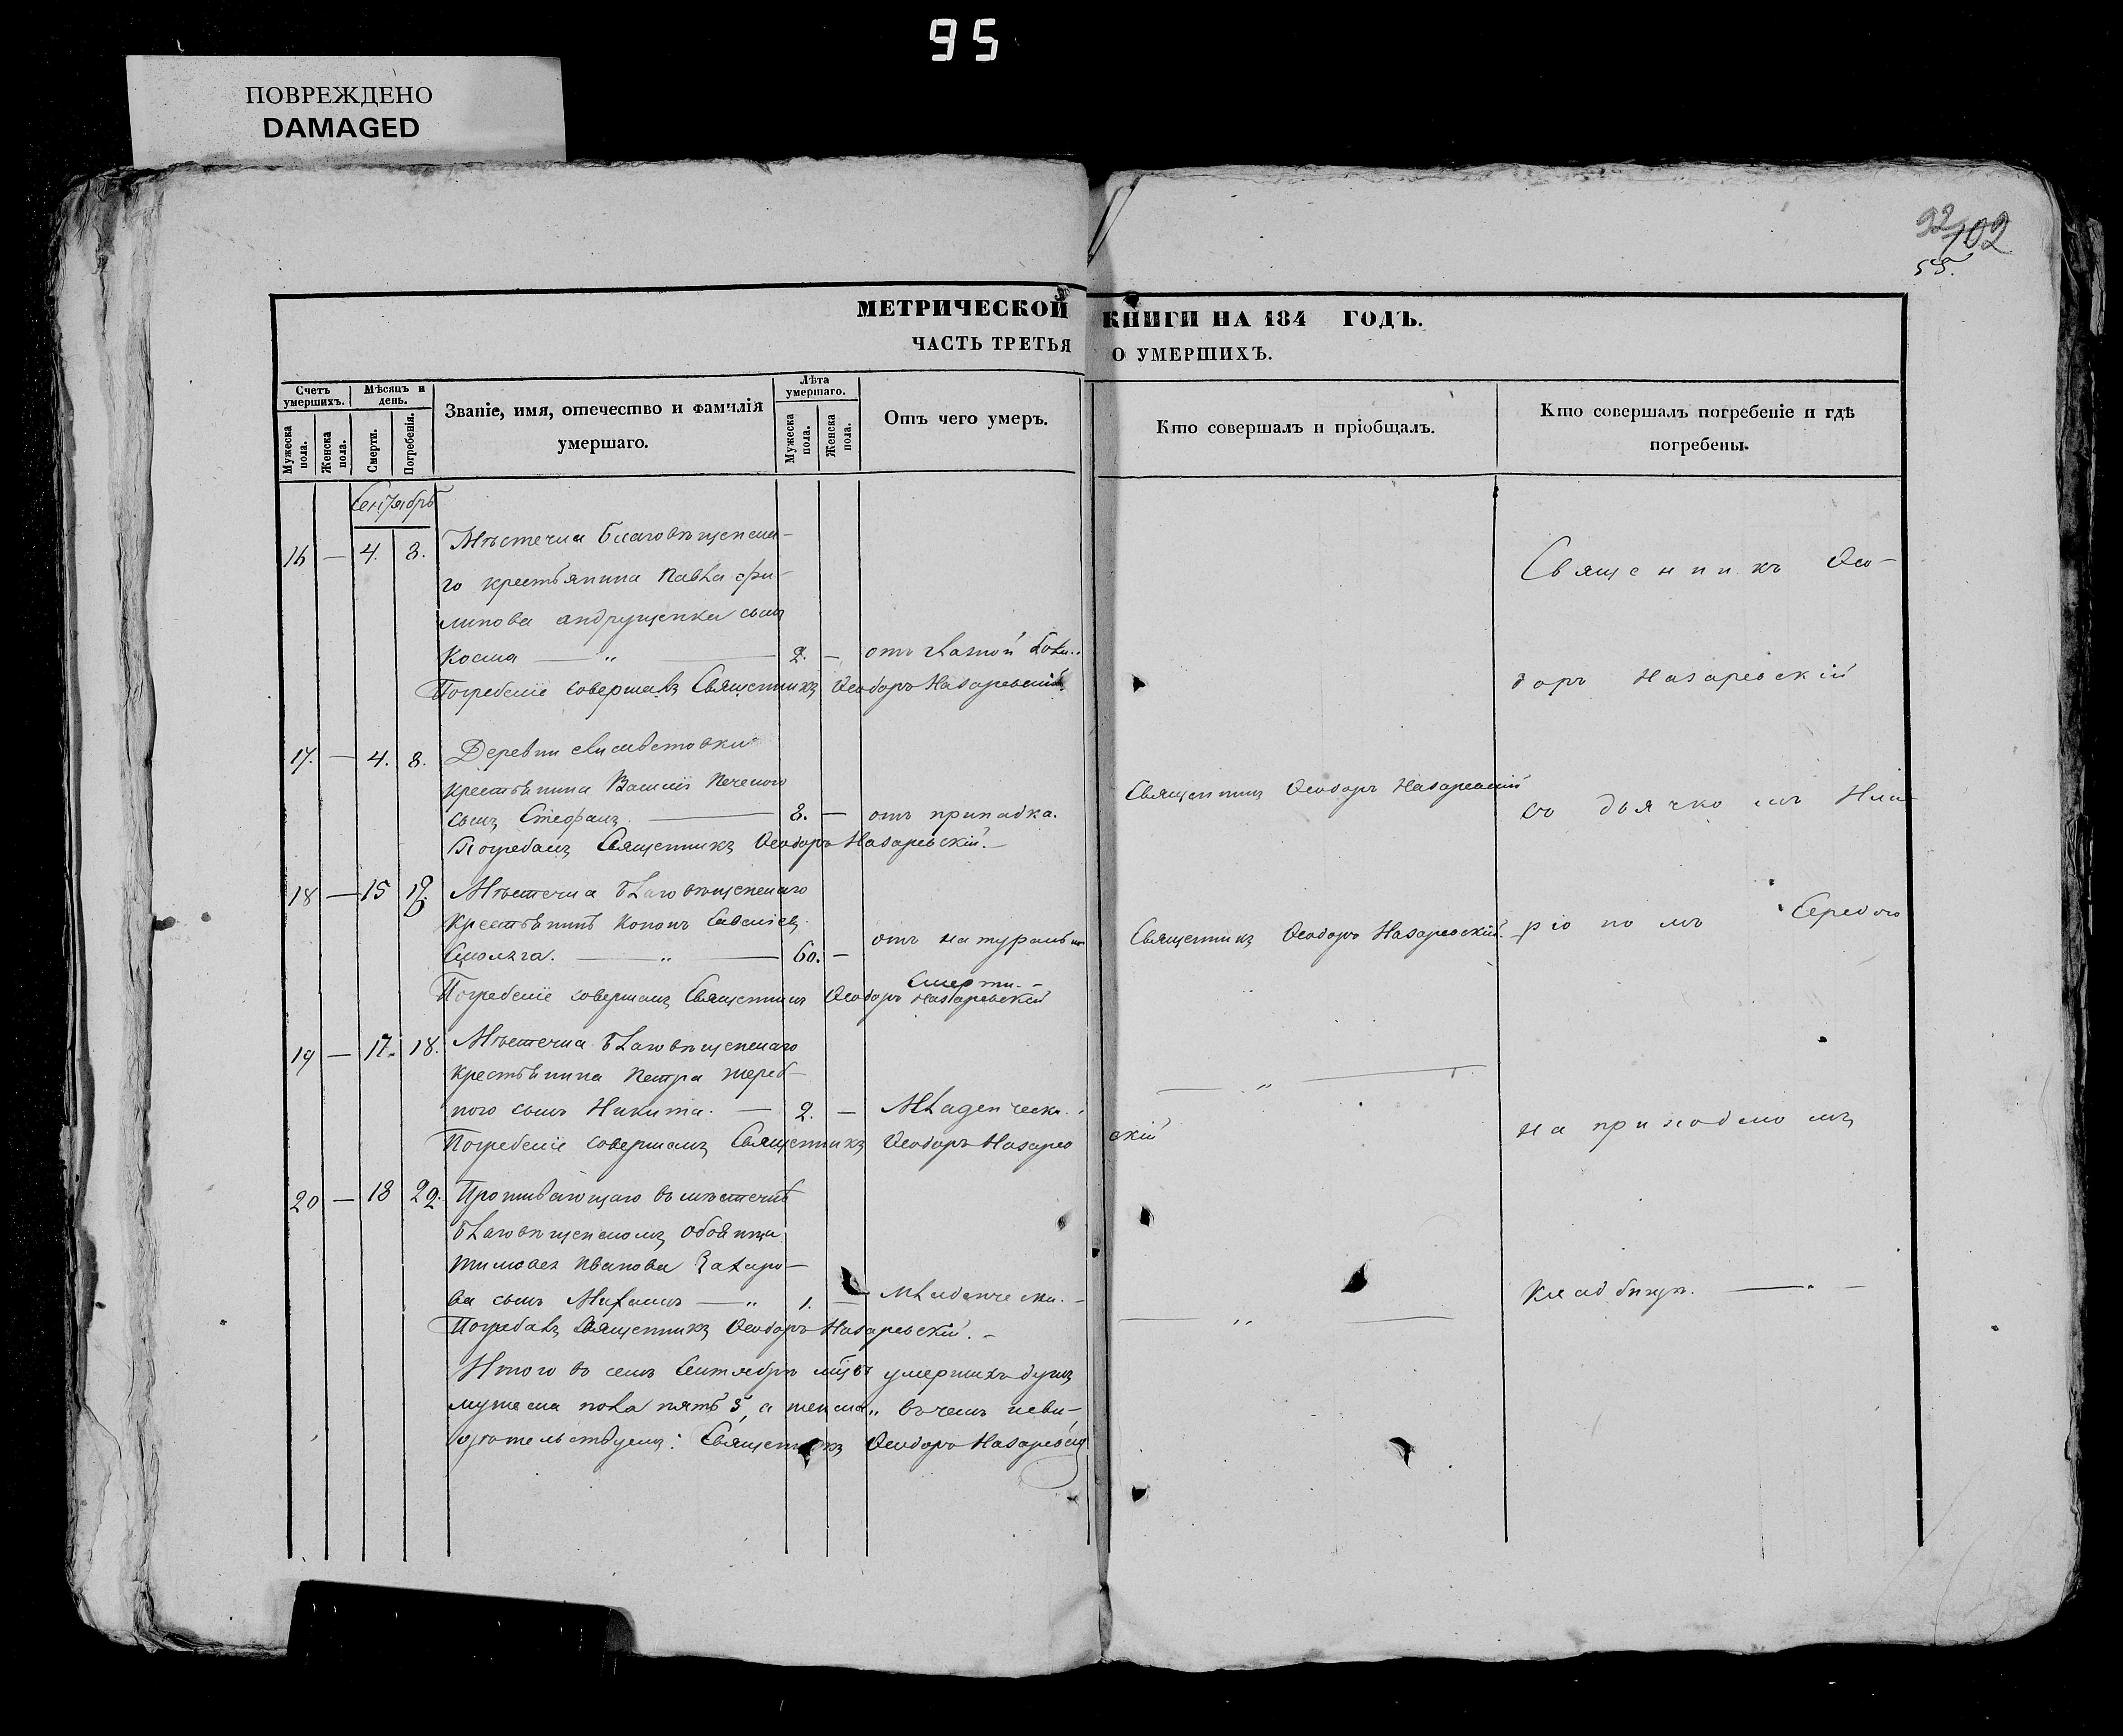 95
ПОВРЕЖДЕНО
DAMAGED
92/102
55.
МЕТРИЧЕСКОЙ КНИГИ НА 184 ГОДЪ.
ЧАСТЬ ТРЕТЬЯ О УМЕРШИХЪ.
Счетъ умершихъ.
Мужеска пола.
Женска пола.
Мѣсяцъ и день.
Смерти.
Погребенія.
Званіе, имя, отечество и фамилія
умершаго.
Лѣта умершаго.
Мужеска пола.
Женска пола.
Отъ чего умеръ.
Кто совершалъ и пріобщалъ.
Кто совершалъ погребеніе и гдѣ
погребены.
Сентябрь
16 — 4. 8. Мѣстечка Благовѣщенска-
го крестьянина Павла Фи-
липова Андрущенка сынъ
Косма — „ — 2. — отъ
Погребеніе совершалъ Священникъ Ѳеодоръ Назаревскій
17. — 4. 8. Деревни
крестьянина Василія
сынъ Стефанъ. — 3. — отъ припадка.
Погребалъ Священникъ Ѳеодоръ Назаревскій. —
Священникъ Ѳеодоръ Назаревскій
18 — 15 Мѣстечка Благовѣщенскаго
крестьянинъ Кононъ
— „ — 60. — отъ натуральн
смерти. —
Погребеніе совершалъ Священникъ Ѳеодоръ Назаревскій
Священникъ Ѳеодоръ Назаревскій.
19 — 17. 18. Мѣстечка Благовѣщенскаго
крестьянина Петра Жереб-
ного сынъ Никита. — 2. — Младенческ.
Погребеніе совершалъ Священникъ Ѳеодоръ Назаревскій
— „ —
20 — 18 22. Проживающаго въ мѣстечкѣ
Благовѣщенскомъ
Тимофея Иванова Захаро-
ва сынъ Михаилъ — „ 1. — Младенчески. —
Погребалъ Священникъ Ѳеодоръ Назаревскій. —
— „ —
Итого въ семъ Сентябрѣ мцѣ умершихъ душъ
мужеска пола пять 5, а женска „ въ чемъ и сви-
дѣтельствуемъ: Священникъ Ѳеодоръ Назаревскій
Священникъ Ѳео-
доръ Назаревскій
съ дьячкомъ Ила-
ріономъ
на приходскомъ
кладбищѣ. —